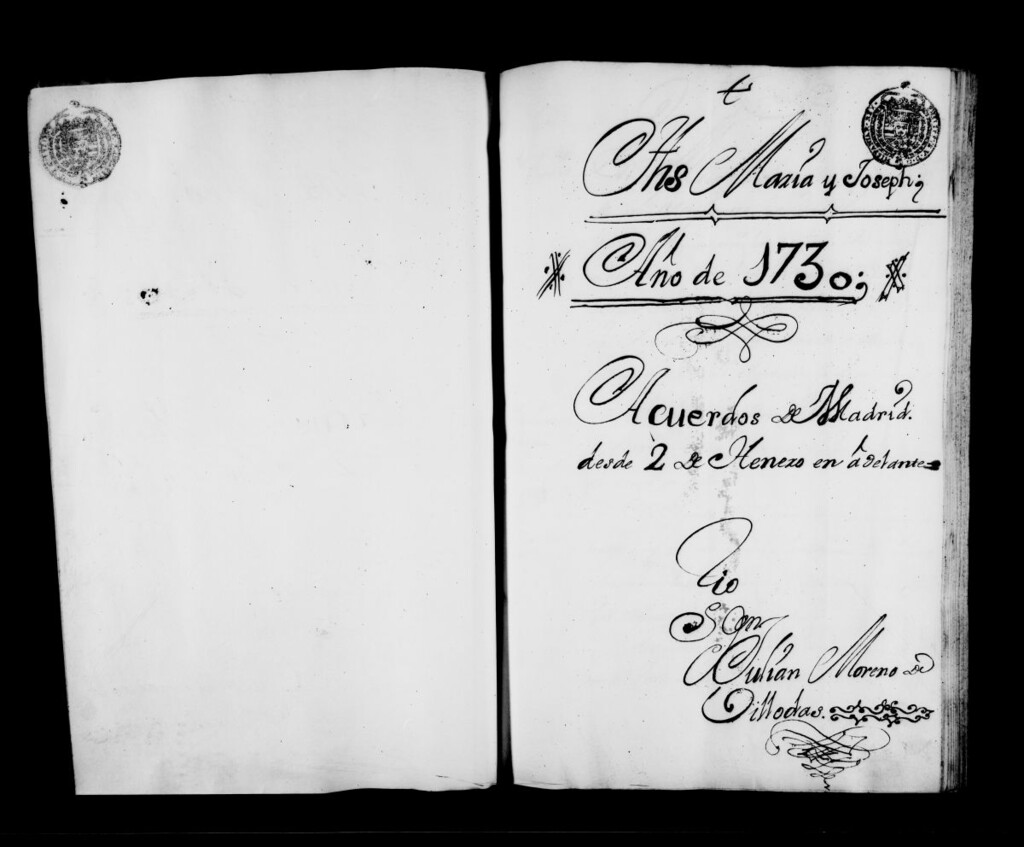 Jhs Maria y Joseph;
Año de 1730;
Acuerdos de Madrid.
desde 2 de Henero en adelante
Srio
S.r Dn
Julian Moreno de
Villodas.